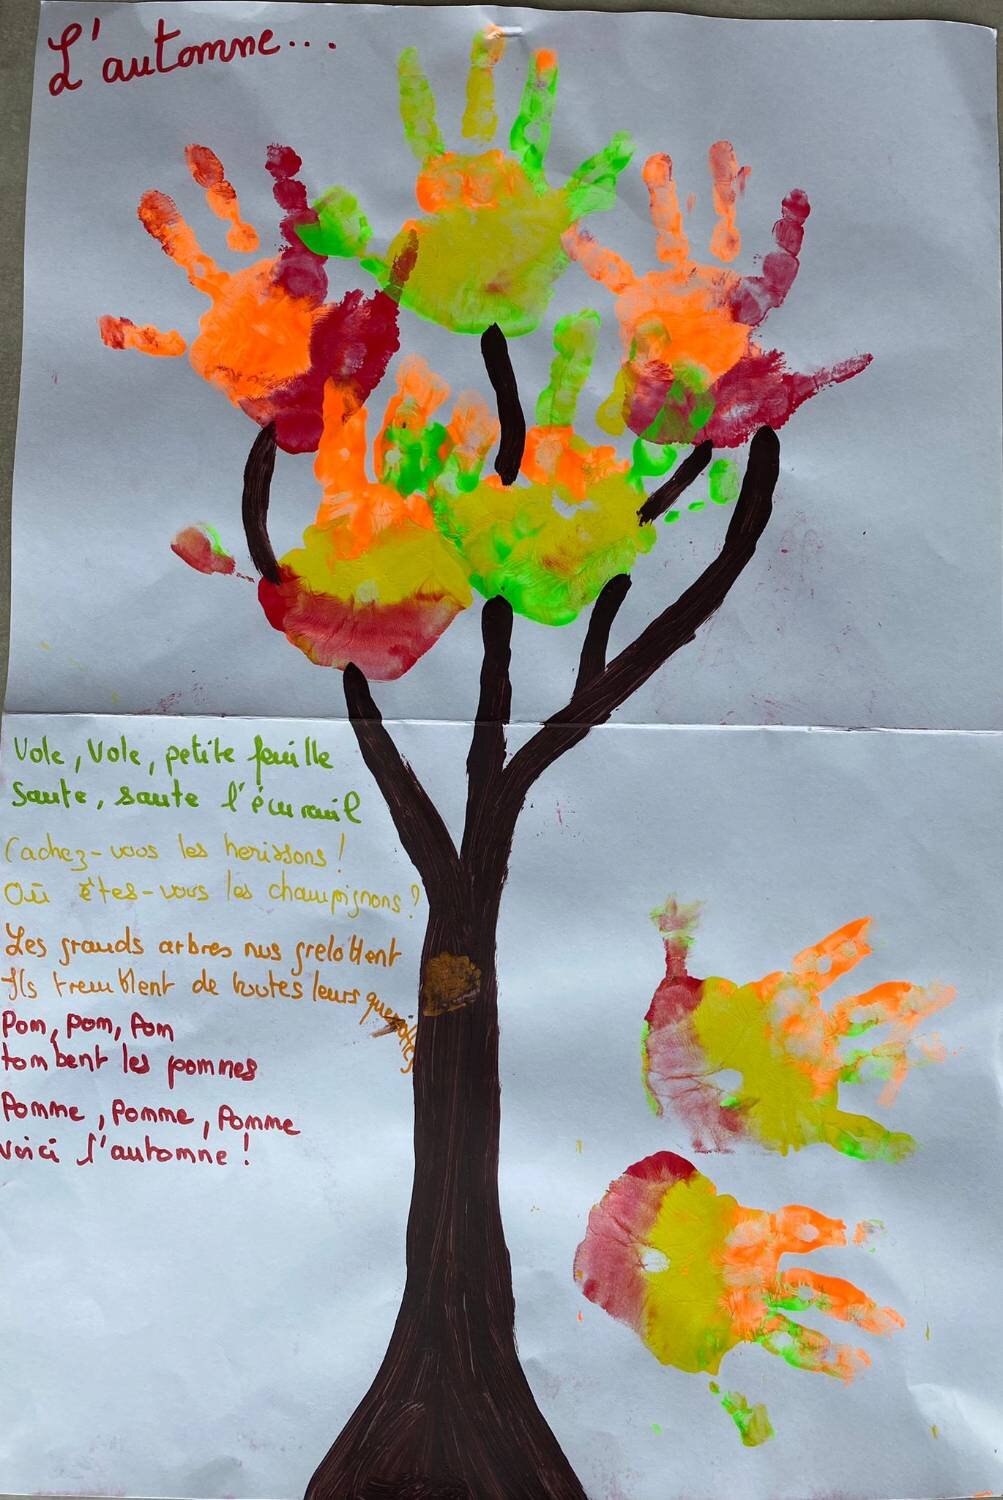 L'automne...
Vole, Vole, petite feuille
Saute, saute l'écureuil
Cachez-vous les herissons !
Où êtes-vous les champignons ?
Les grands arbres nus grelottent
Ils tremblent de toutes leurs quenottes
Pom, pom, Pom
tombent les pommes
Pomme, Pomme, Pomme
voici l'automne !